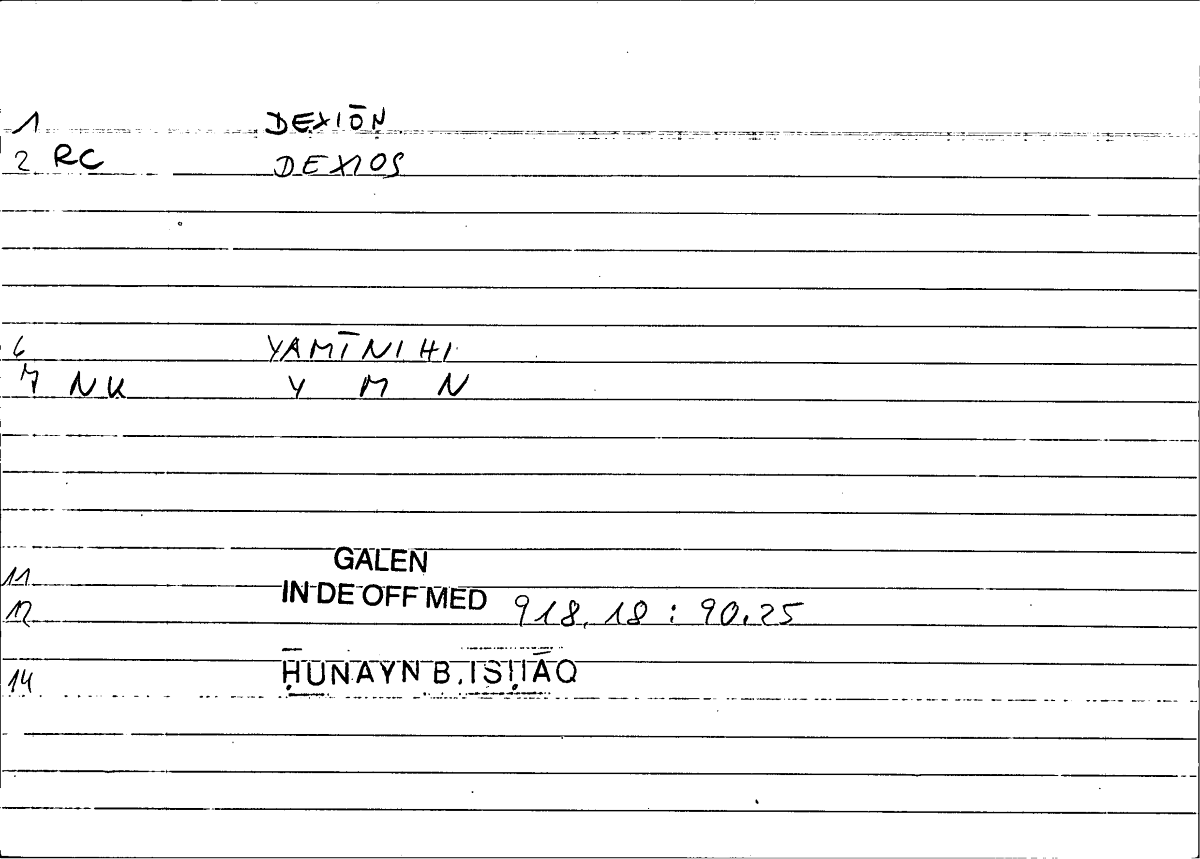 1 DEXIŌN
2 RC DEXIOS
6 YAMĪNIHI
7 NK Y M N
GALEN
11
IN DE OFF MED
12 918.18 : 90.25
14 ḤUNAYN B. ISḤĀQ